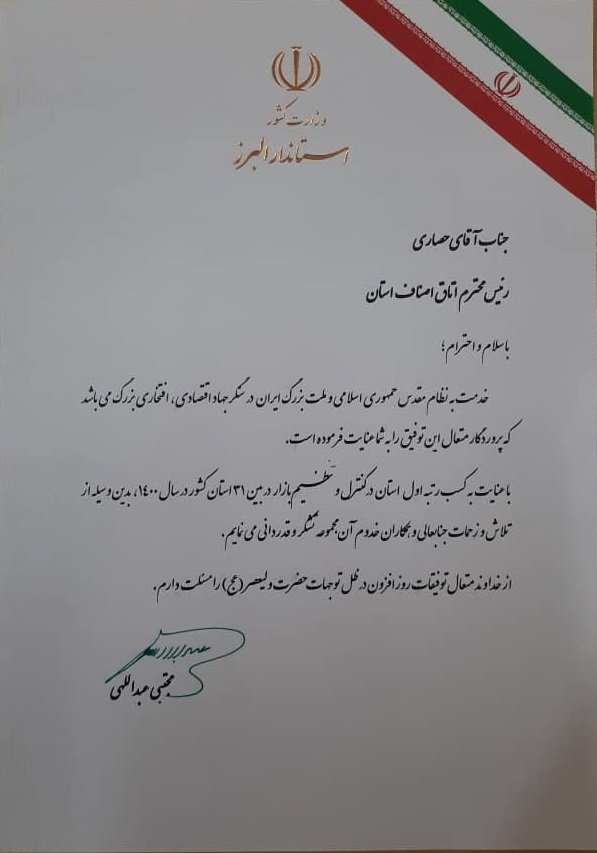 وزارت کشور
استاندار البرز
جناب آقای حصاری
رئیس محترم اتاق اصناف استان
با سلام و احترام ؛
خدمت به نظام مقدس جمهوری اسلامی و ملت بزرگ ایران در سنگر جهاد اقتصادی، افتخاری بزرگ می باشد
که پروردگار متعال این توفیق را به شما عنایت فرموده است.
با عنایت به کسب رتبه اول استان در کنترل و تنظیم بازار در بین ۳۱ استان کشور در سال ۱۴۰۰، بدین وسیله از
تلاش و زحمات جنابعالی و همکاران خدوم آن مجموعه تشکر و قدردانی می نمایم.
از خداوند متعال توفیقات روز افزون در ظل توجهات حضرت ولیعصر(عج) را مسئلت دارم.
مجتبی عبداللهی